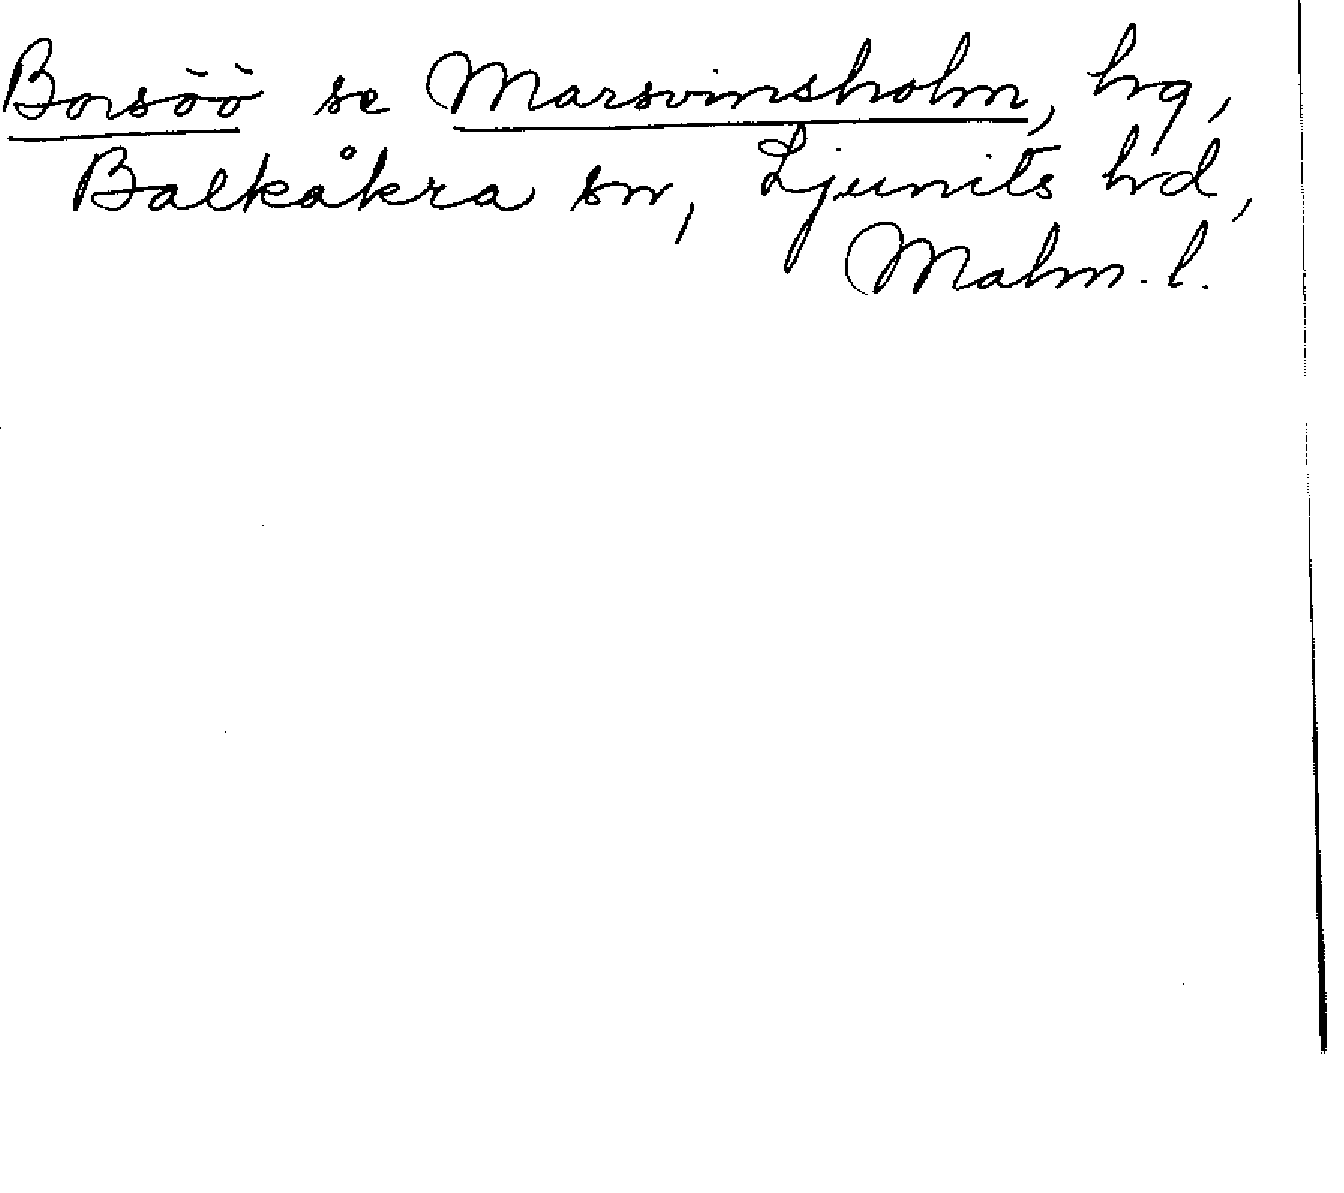 Borsöö se Marsvinsholm, hg,
Balkåkra sn, Ljunits hd,
Malm. l.